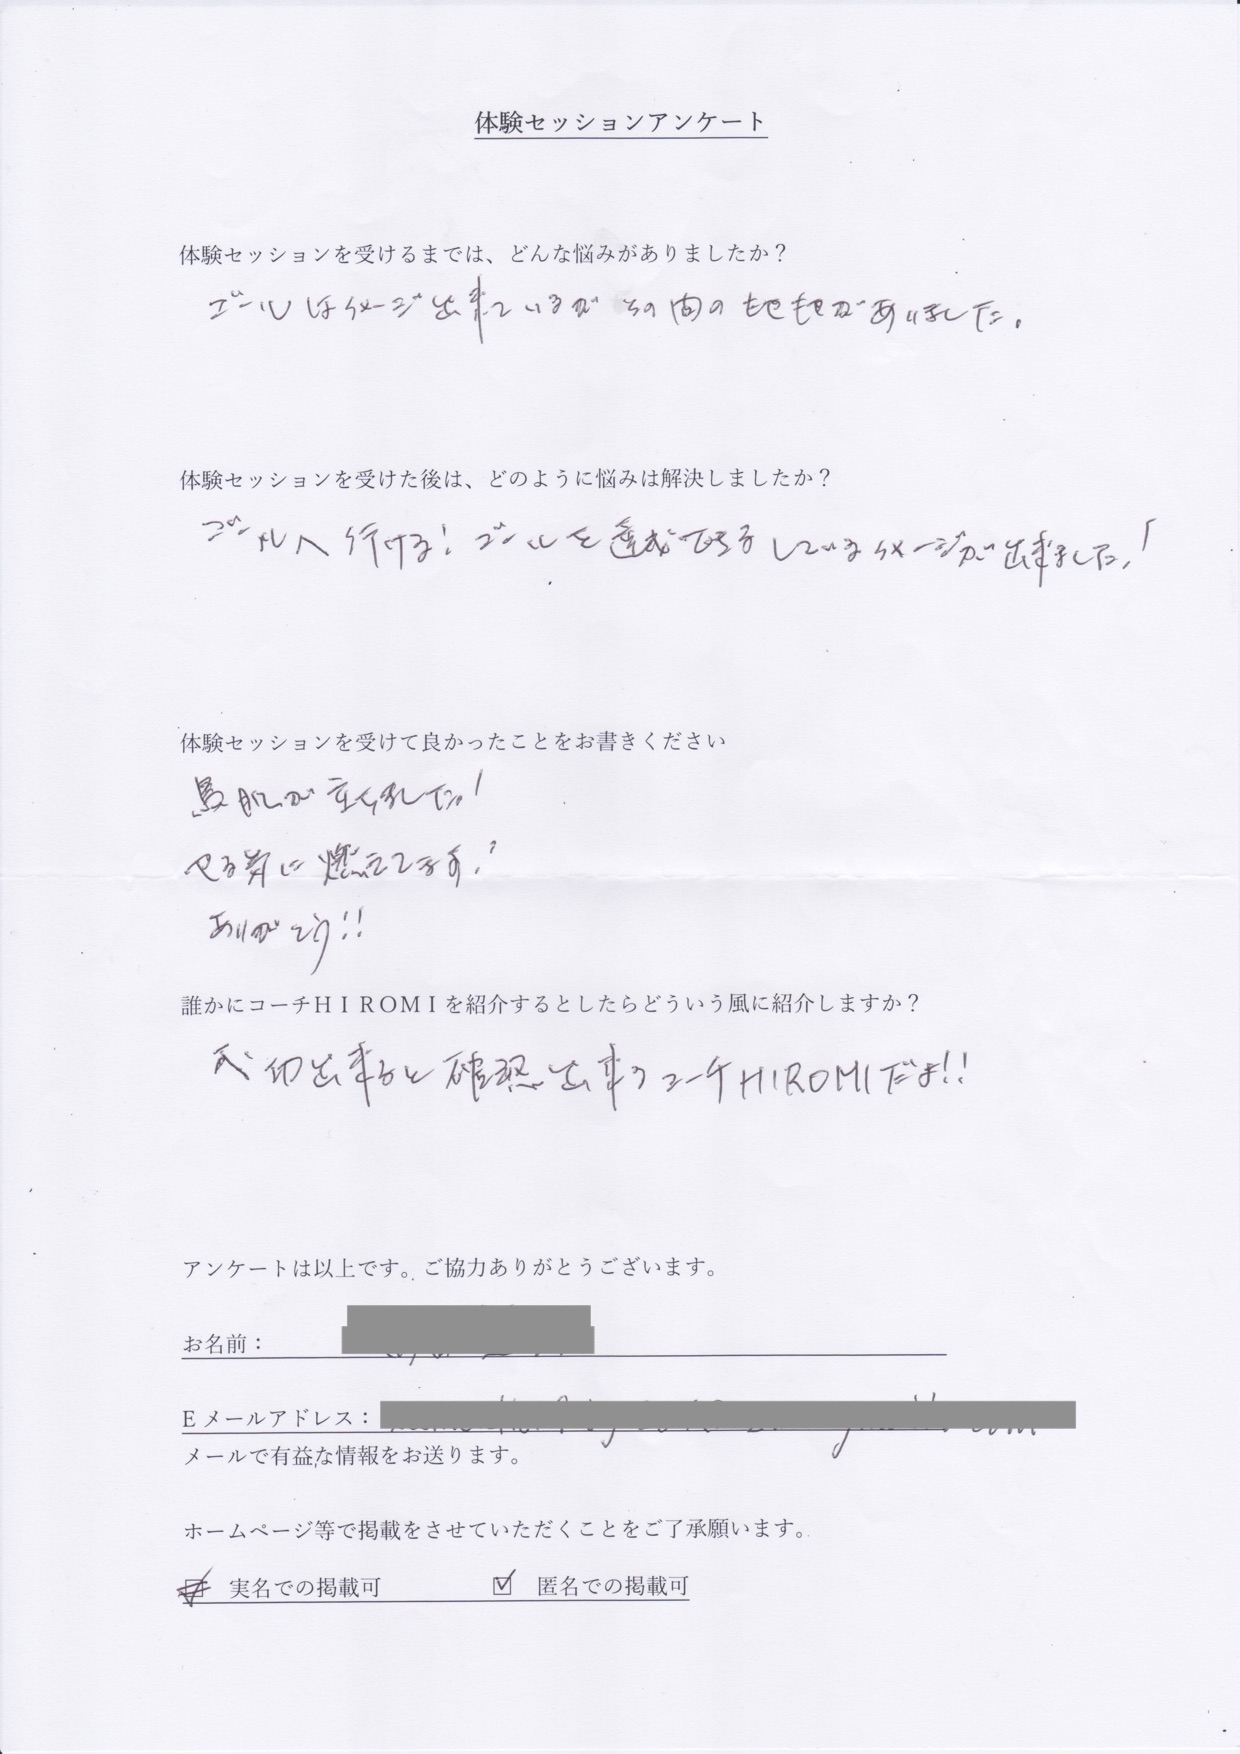 体験セッションアンケート
体験セッションを受けるまでは、どんな悩みがありましたか？
ゴールはイメージ出来ているがその間のモヤモヤがありました。
体験セッションを受けた後は、どのように悩みは解決しましたか？
ゴールへ行ける！ゴールを達成できるしているイメージが出来ました！
体験セッションを受けて良かったことをお書きください
鳥肌が立ちました！
やる気に燃えてます！
ありがとう!!
誰かにコーチＨＩＲＯＭＩを紹介するとしたらどういう風に紹介しますか？
出来ると確認出来るコーチHIROMIだよ!!
アンケートは以上です。ご協力ありがとうございます。
お名前：
Ｅメールアドレス：
メールで有益な情報をお送ります。
ホームページ等で掲載をさせていただくことをご了承願います。
実名での掲載可 ☑ 匿名での掲載可